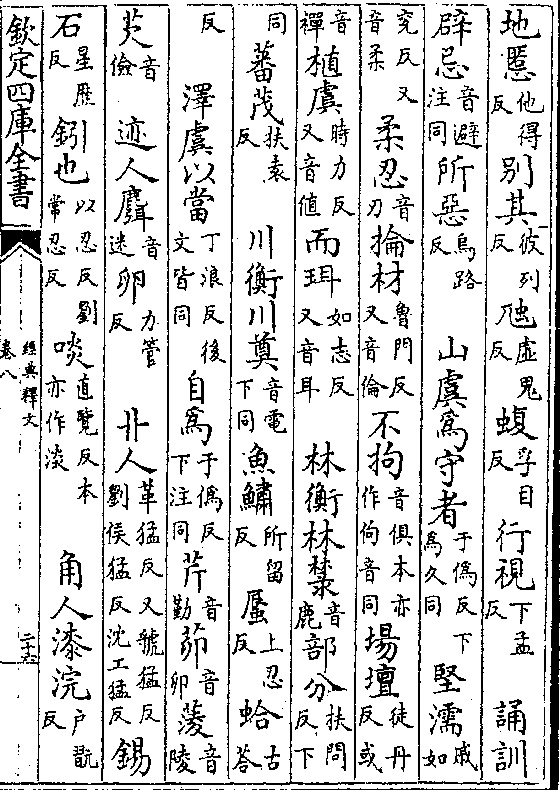 地慝他得反別其彼列反虺虛鬼反蝮孚目反行視下孟反 誦訓
辟忌音避注同所惡烏路反 山虞爲守者于僞反下爲久同堅濡戚如
兖反又音柔 柔忍音刃掄材魯門反又音倫不拘音俱本亦作佝音同場壇徒丹反或
音禪植虞時力反又音値而珥如志反又音耳 林衡林麓音鹿部分扶問反下
同 蕃茂扶袁反 川衡川奠音電下同魚鱐所留反蜃上忍反蛤古荅
反 澤虞以當丁浪反後文皆同 自爲于僞反下注同芹音勤茆音卯蔆音陵
芡音儉 迹人麛音迷卵力管反 丱人革猛反又虢猛反劉侯猛反沈工猛反錫
石星歷反鈏也以忍反劉常忍反啖直覽反本亦作淡 角人漆浣戶翫反
欽定四庫全書
經典釋文
卷八
二十六